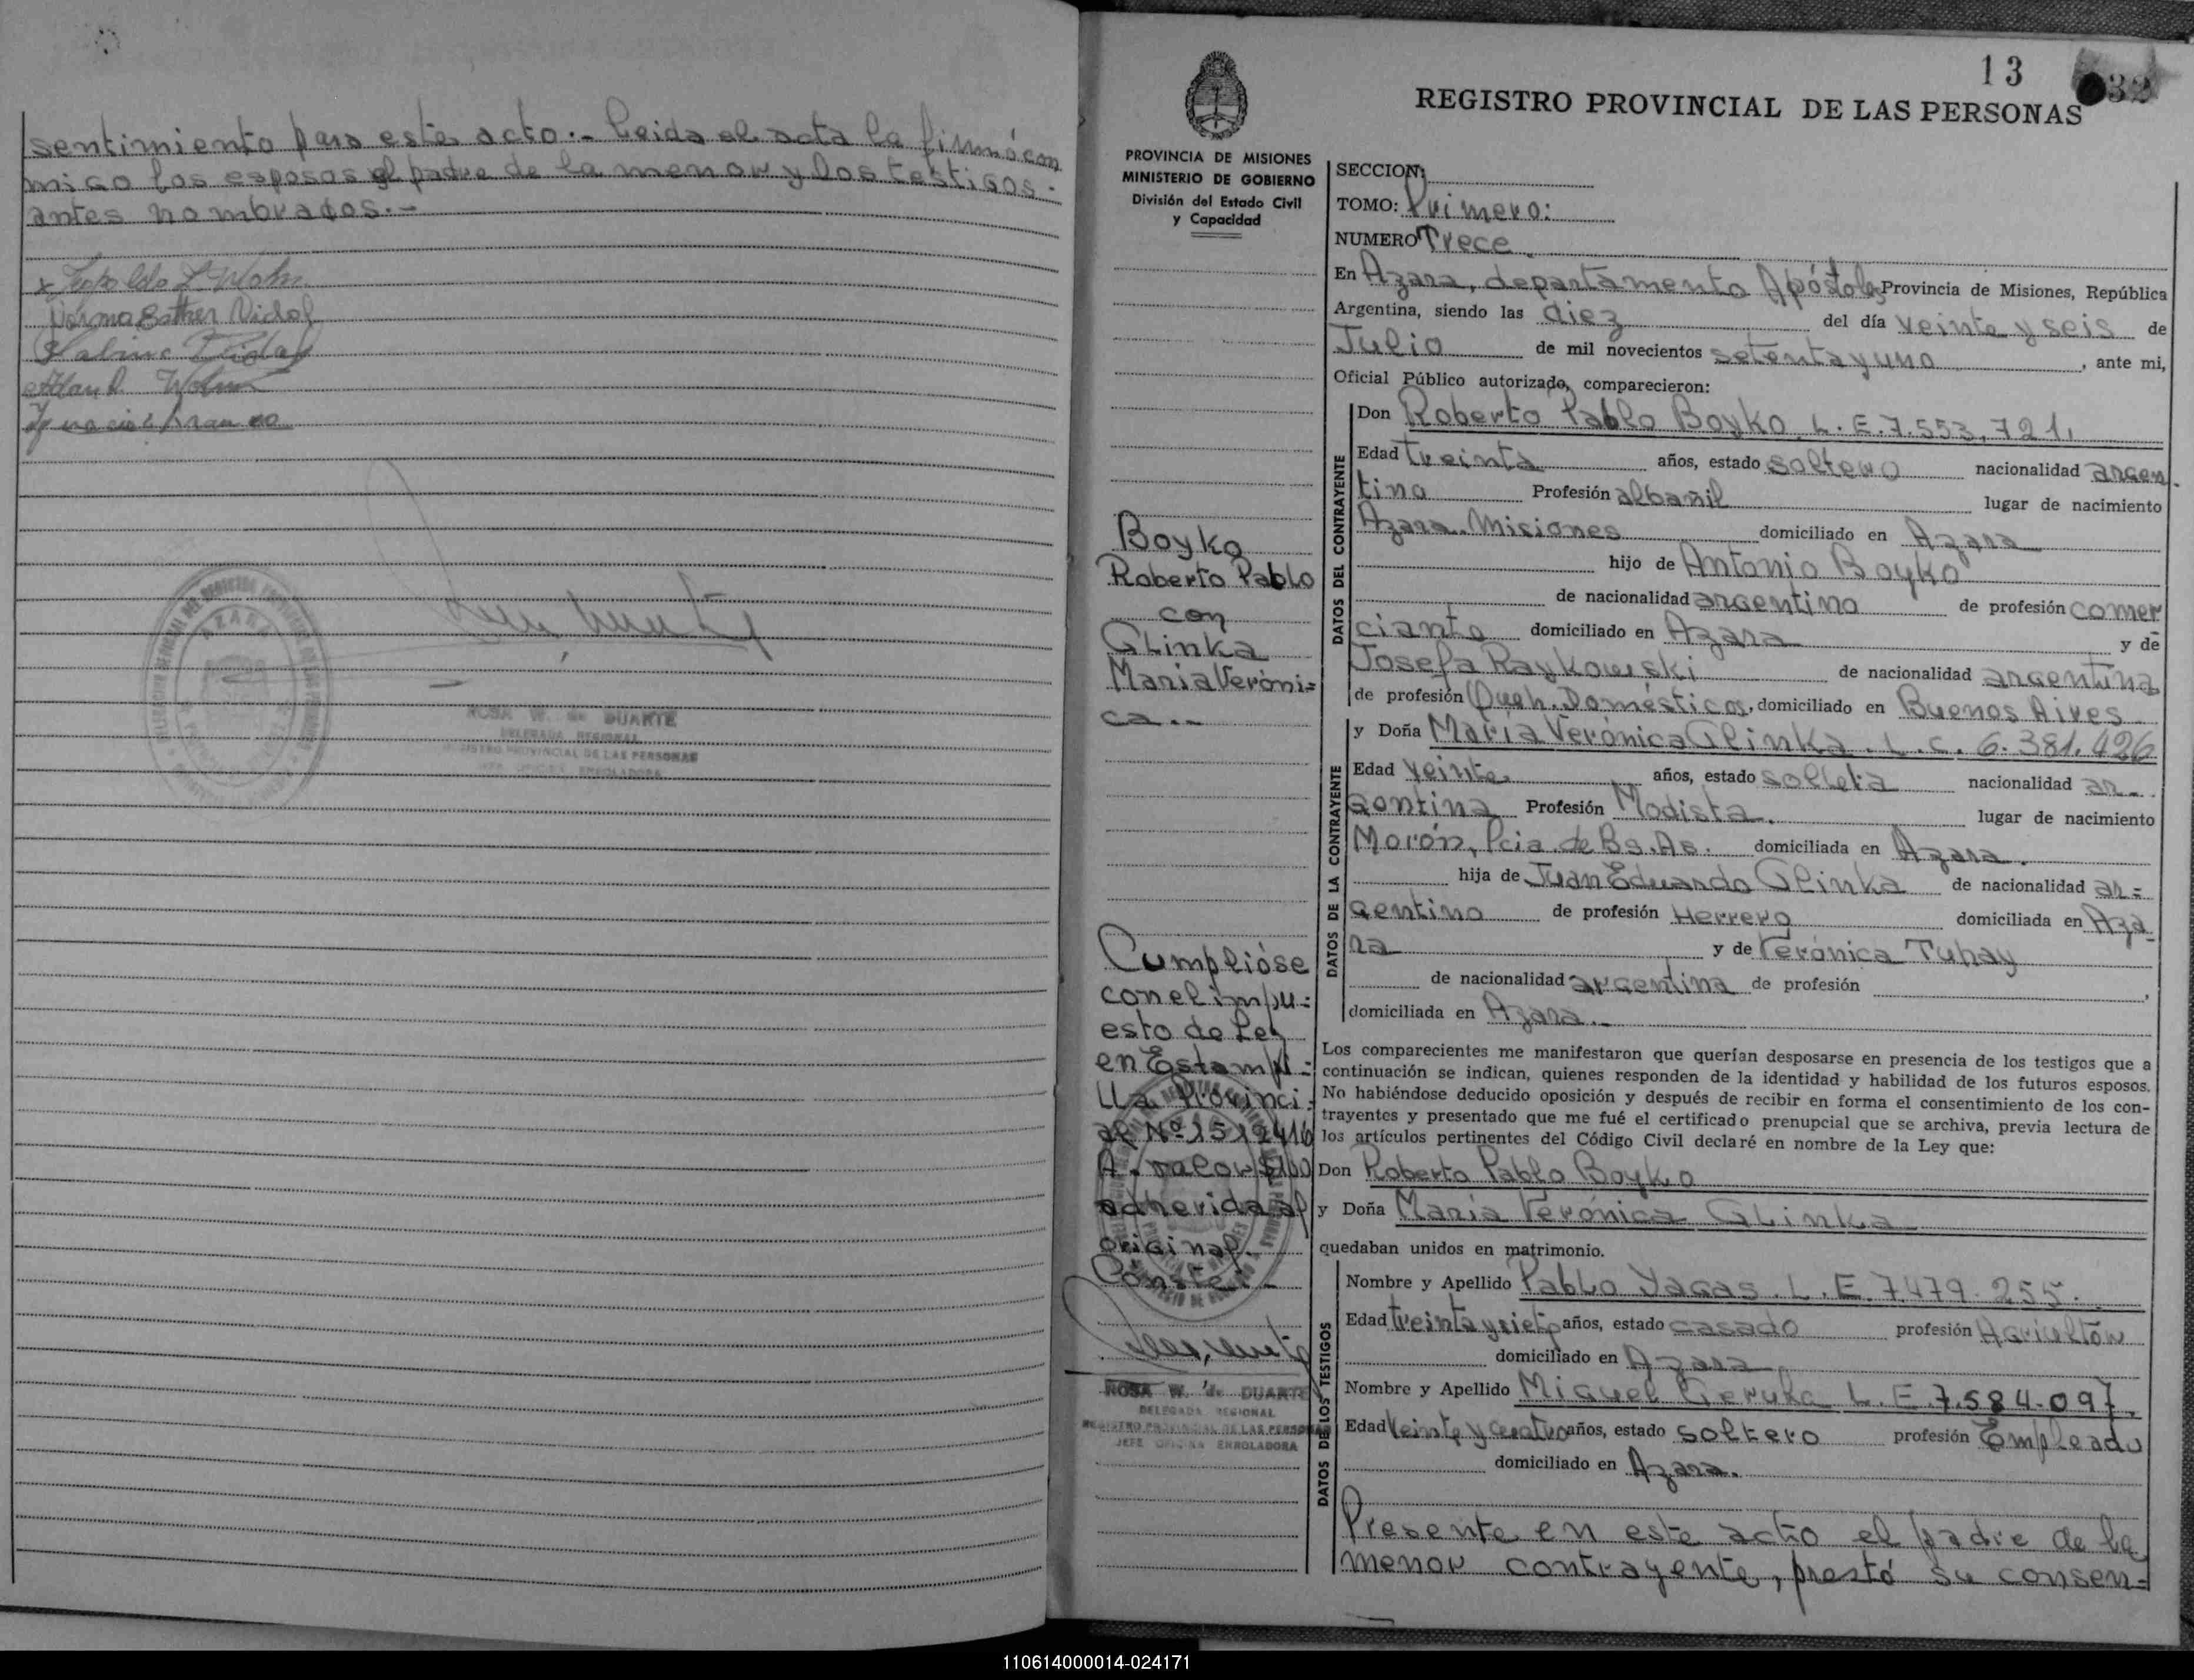 sentimiento para este acto.- Leida el acta la firmó con
migo los esposos el padre de la menor y los testigos.
antes nombrados.-
Norma Esther Vidal
ROSA W. de DUARTE
DELEGADA REGIONAL
REGISTRO PROVINCIAL DE LAS PERSONAS
JEFE OFICINA ENROLADORA
13
032
REGISTRO PROVINCIAL DE LAS PERSONAS
PROVINCIA DE MISIONES
MINISTERIO DE GOBIERNO
División del Estado Civil
y Capacidad
Boyko
Roberto Pablo
con
Glinka
María Veróni=
ca.-
Cumplióse
con el impu=
esto de Ley
en Estampi=
lla Provinci=
al Nº
A. valor $
adherida al
original.-
Conste:-
ROSA W. de DUARTE
DELEGADA REGIONAL
REGISTRO PROVINCIAL DE LAS PERSONAS
JEFE OFICINA ENROLADORA
SECCION:
TOMO: Primero:
NUMERO Trece
En Azara, departamento Apóstoles Provincia de Misiones, República
Argentina, siendo las diez del día veinte y seis de
Julio de mil novecientos setenta y uno , ante mi,
Oficial Público autorizado, comparecieron:
DATOS DEL CONTRAYENTE
Don Roberto Pablo Boyko L. E. 7.553.721.
Edad treinta años, estado soltero nacionalidad argen
tina Profesión albañil lugar de nacimiento
Azara. Misiones domiciliado en Azara
hijo de Antonio Boyko
de nacionalidad argentino de profesión comer
ciante domiciliado en Azara y de
Josefa Raykowski de nacionalidad argentina
de profesión Queh. Domésticos, domiciliado en Buenos Aires
DATOS DE LA CONTRAYENTE
y Doña María Verónica Glinka. L. C. 6.381.426
Edad veinte años, estado soltera nacionalidad ar-
gentina Profesión Modista. lugar de nacimiento
Morón, Pcia. de Bs. As. domiciliada en Azara.
hija de Juan Eduardo Glinka de nacionalidad ar=
gentino de profesión Herrero domiciliada en Aza-
ra y de Verónica Tuhay
de nacionalidad argentina de profesión ,
domiciliada en Azara.-
Los comparecientes me manifestaron que querían desposarse en presencia de los testigos que a
continuación se indican, quienes responden de la identidad y habilidad de los futuros esposos.
No habiéndose deducido oposición y después de recibir en forma el consentimiento de los con-
trayentes y presentado que me fué el certificado prenupcial que se archiva, previa lectura de
los artículos pertinentes del Código Civil declaré en nombre de la Ley que:
Don Roberto Pablo Boyko
y Doña María Verónica Glinka
quedaban unidos en matrimonio.
DATOS DE LOS TESTIGOS
Nombre y Apellido Pablo Yagas. L. E. 7479.255.
Edad treinta y siete años, estado casado profesión Agricultor
domiciliado en Azara
Nombre y Apellido Miguel Geruka L. E. 7.584.097.
Edad veinte y cuatro años, estado soltero profesión Empleado
domiciliado en Azara.
Presente en este acto el padre de la
menor contrayente, prestó su consen=
110614000014-024171